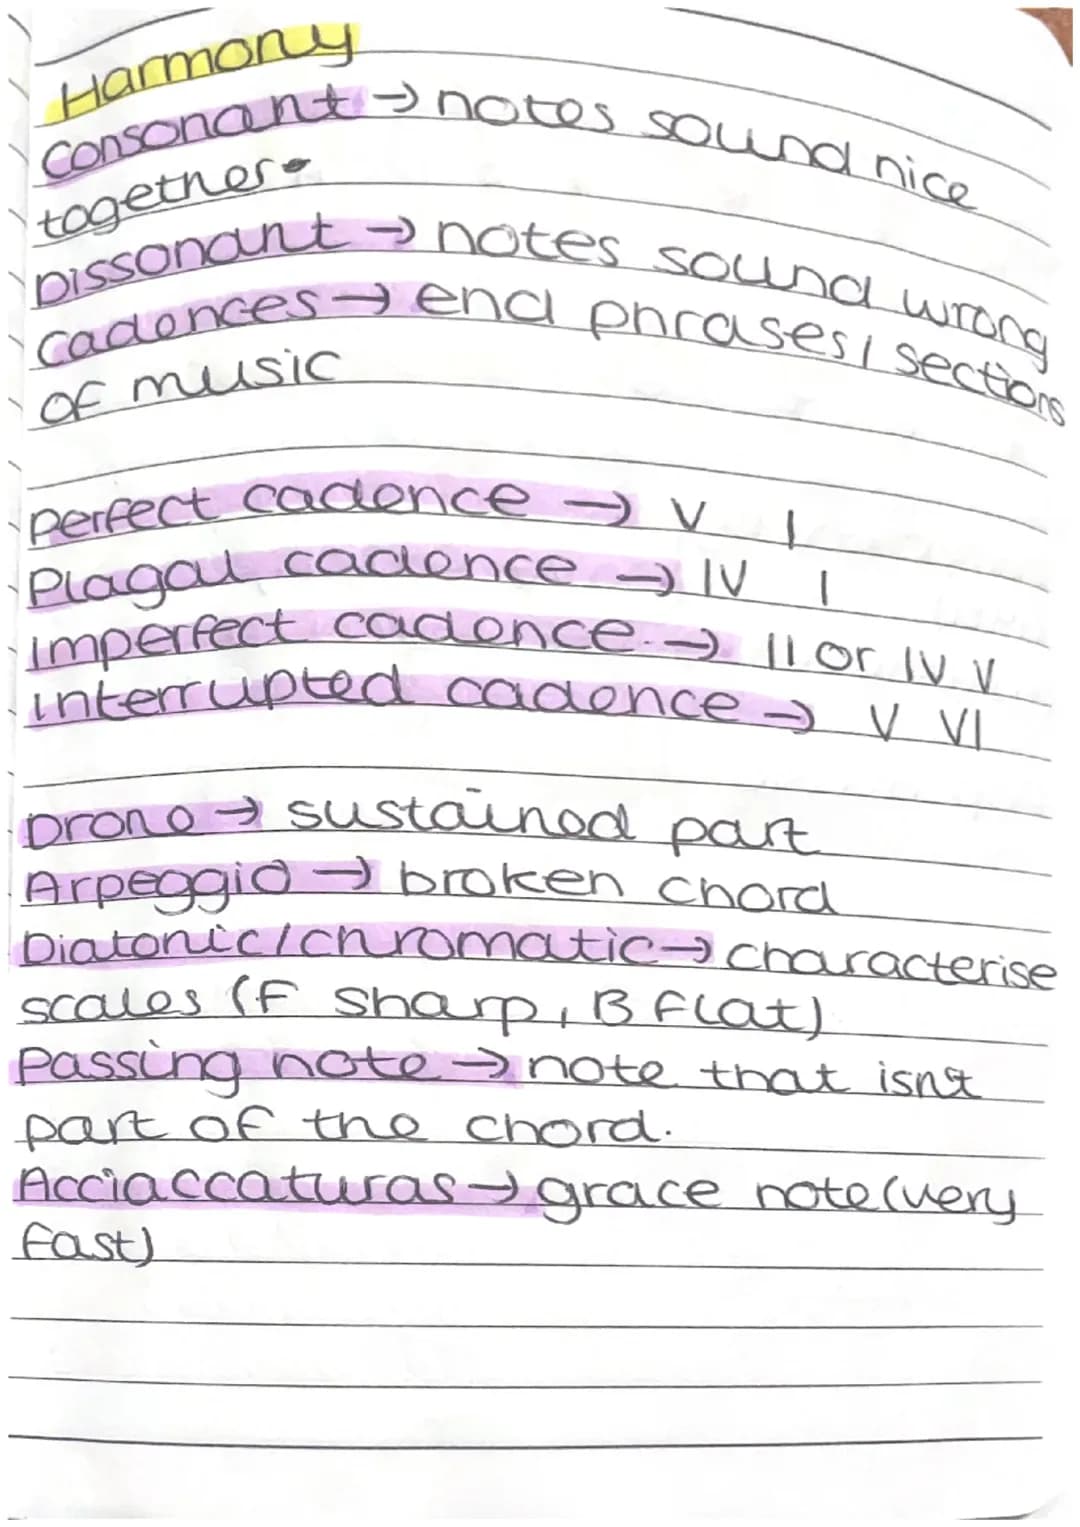 Harmony
Consonant → notes sound nice
together.
Dissonant → notes sound wrong
Cadences → end phrases/sections
of music
Perfect cadence → V I
Plagal cadence → IV I
imperfect cadence. → II or IV V
interrupted cadence → V VI
Drone → sustained part
Arpeggio → broken chord
Diatonic/chromatic → characterise
scales (F sharp, B flat)
Passing note → note that isn't
part of the chord.
Acciaccaturas → grace note (very
fast)